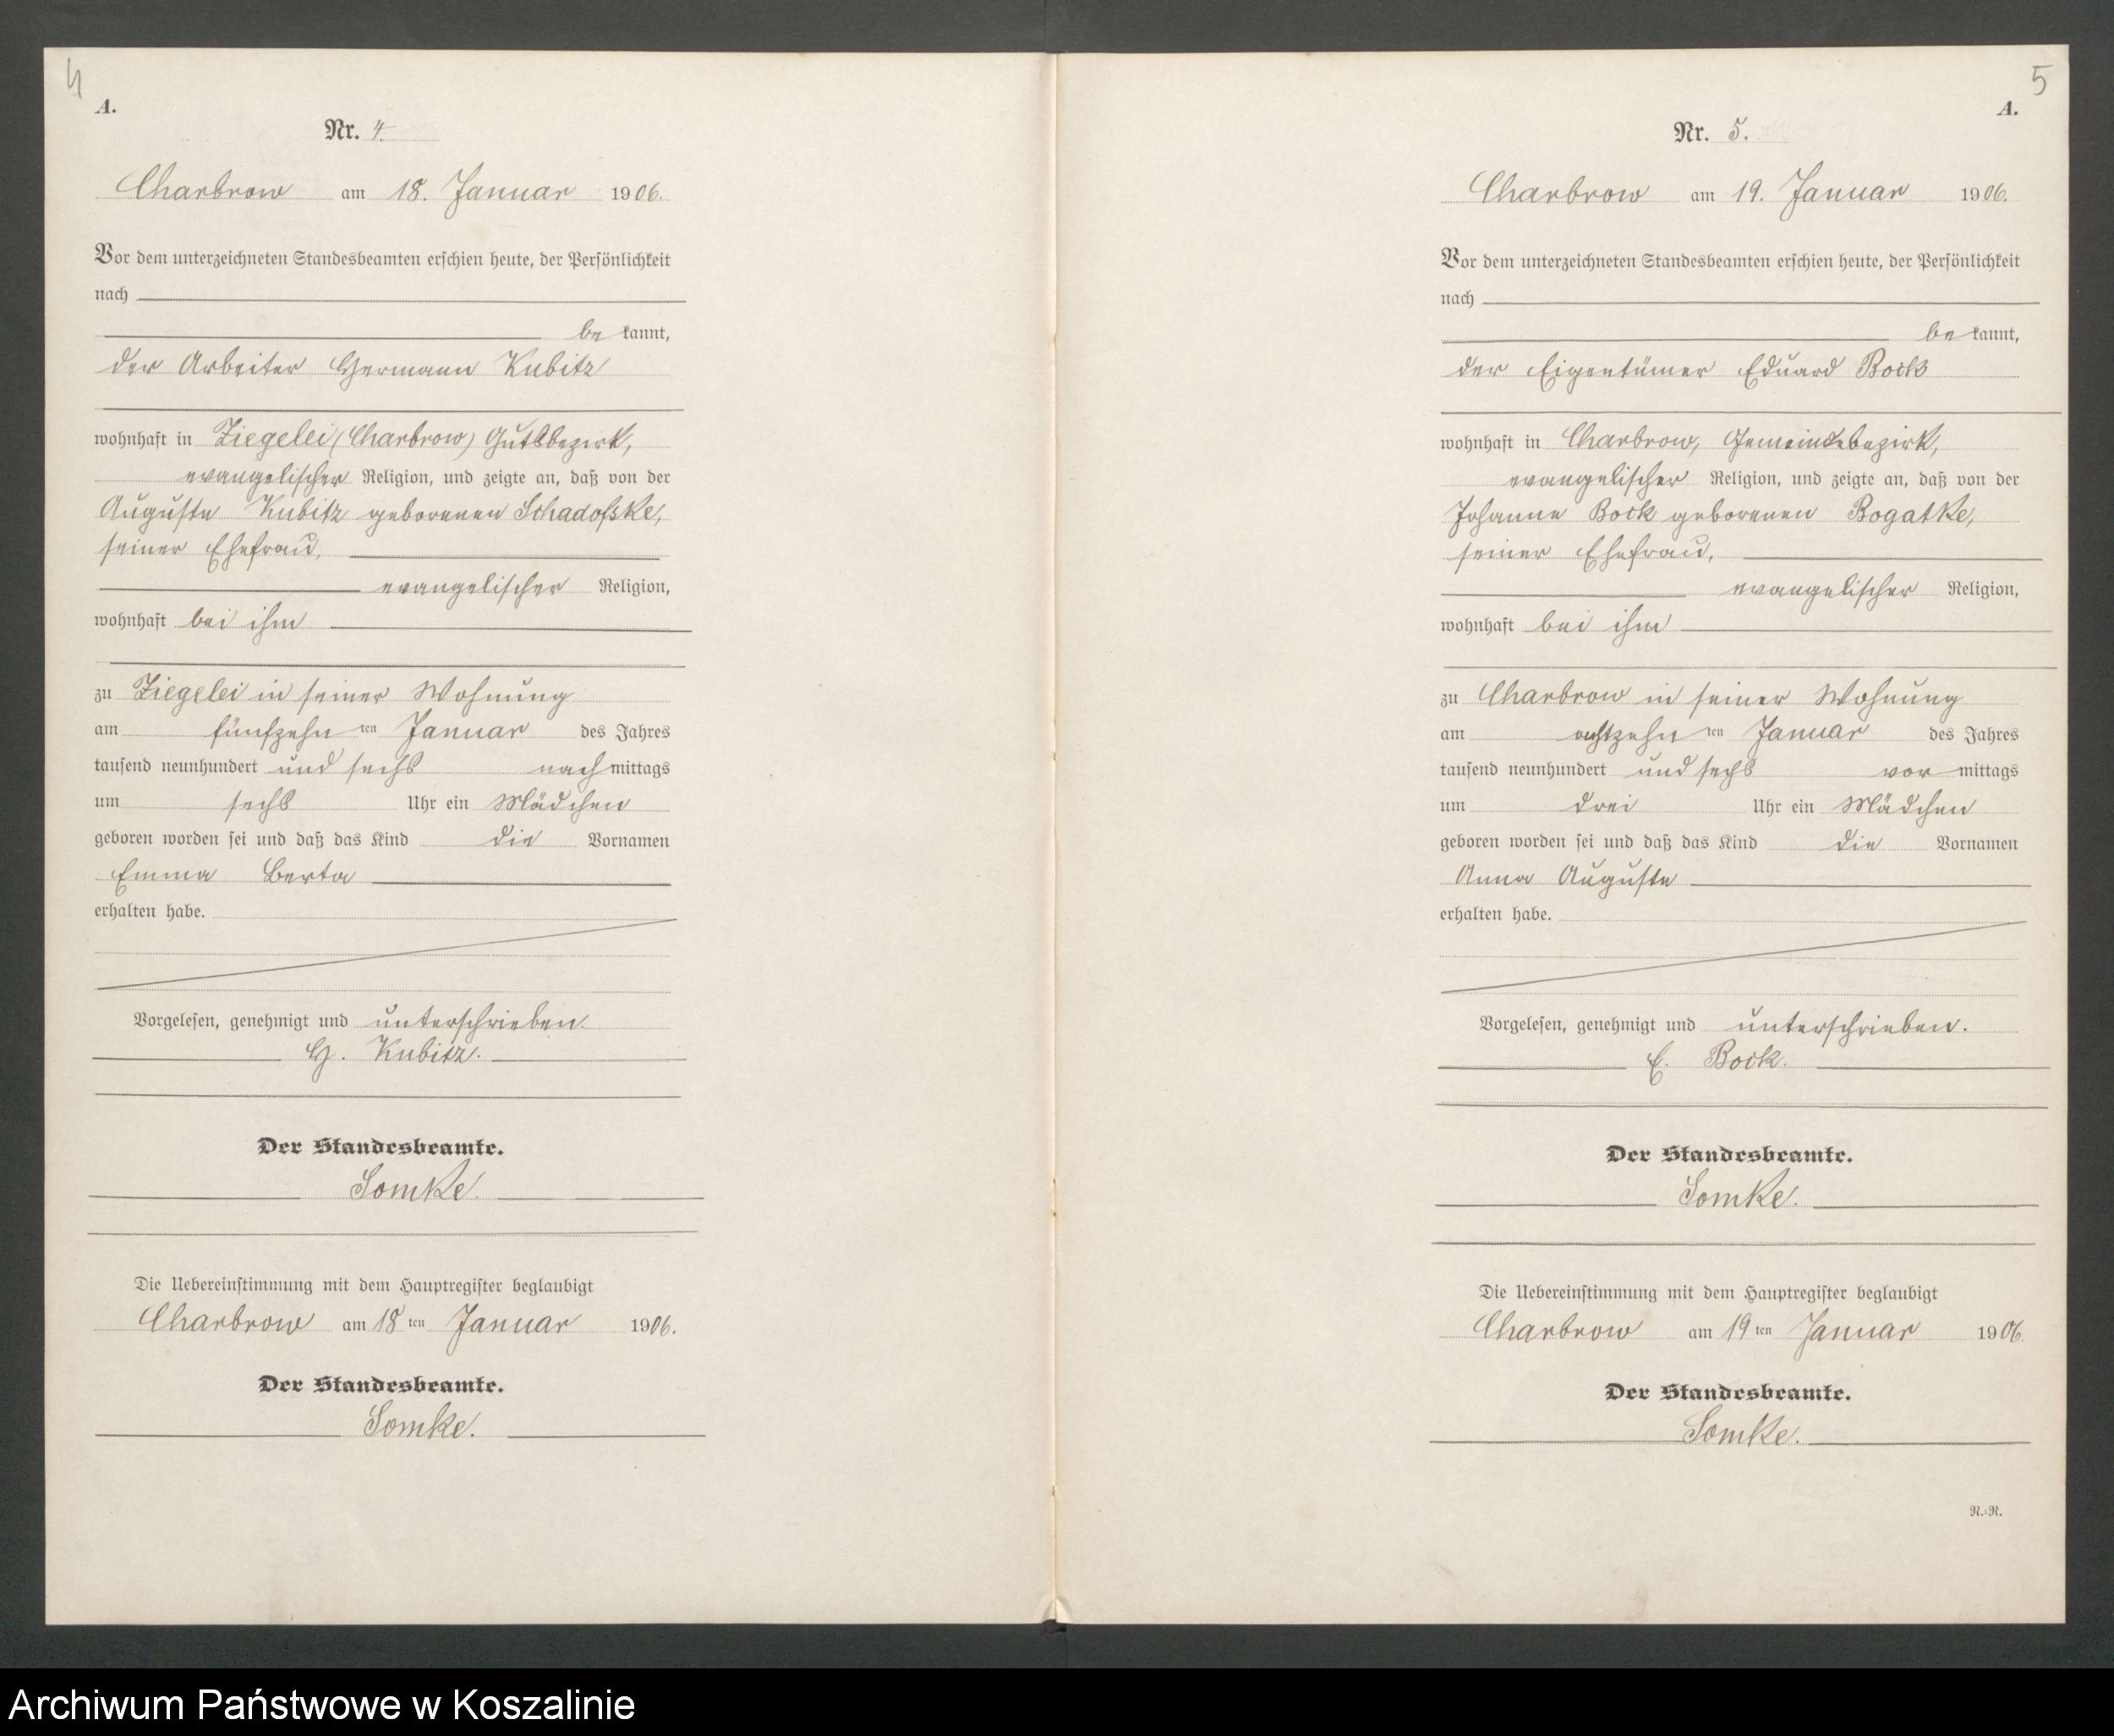 4
A.
Nr. 4.
Charbrow am 18. Januar 1906.
Vor dem unterzeichneten Standesbeamten erschien heute, der Persönlichkeit
nach
be kannt,
der Arbeiter Hermann Kubitz
wohnhaft in Ziegelei (Charbrow) Gutsbezirk,
evangelischer Religion, und zeigte an, daß von der
Auguste Kubitz geborenen Schadofske,
seiner Ehefrau,
evangelischer Religion,
wohnhaft bei ihm
zu Ziegelei in seiner Wohnung
am fünfzehn ten Januar des Jahres
tausend neunhundert und sechs nach mittags
um sechs Uhr ein Mädchen
geboren worden sei und daß das Kind die Vornamen
Emma Berta
erhalten habe.
Vorgelesen, genehmigt und unterschrieben.
H. Kubitz.
Der Standesbeamte.
Somke.
Die Uebereinstimmung mit dem Hauptregister beglaubigt
Charbrow am 18 ten Januar 1906.
Der Standesbeamte.
Somke.
5
A.
Nr. 5.
Charbrow am 19. Januar 1906.
Vor dem unterzeichneten Standesbeamten erschien heute, der Persönlichkeit
nach
be kannt,
der Eigentümer Eduard Bock
wohnhaft in Charbrow, Gemeindebezirk,
evangelischer Religion, und zeigte an, daß von der
Johanne Bock geborenen Bogatke,
seiner Ehefrau,
evangelischer Religion,
wohnhaft bei ihm
zu Charbrow in seiner Wohnung
am achtzehn ten Januar des Jahres
tausend neunhundert und sechs vor mittags
um drei Uhr ein Mädchen
geboren worden sei und daß das Kind die Vornamen
Anna Auguste
erhalten habe.
Vorgelesen, genehmigt und unterschrieben.
E. Bock.
Der Standesbeamte.
Somke.
Die Uebereinstimmung mit dem Hauptregister beglaubigt
Charbrow am 19 ten Januar 1906
Der Standesbeamte.
Somke.
N.=R.
Archiwum Państwowe w Koszalinie